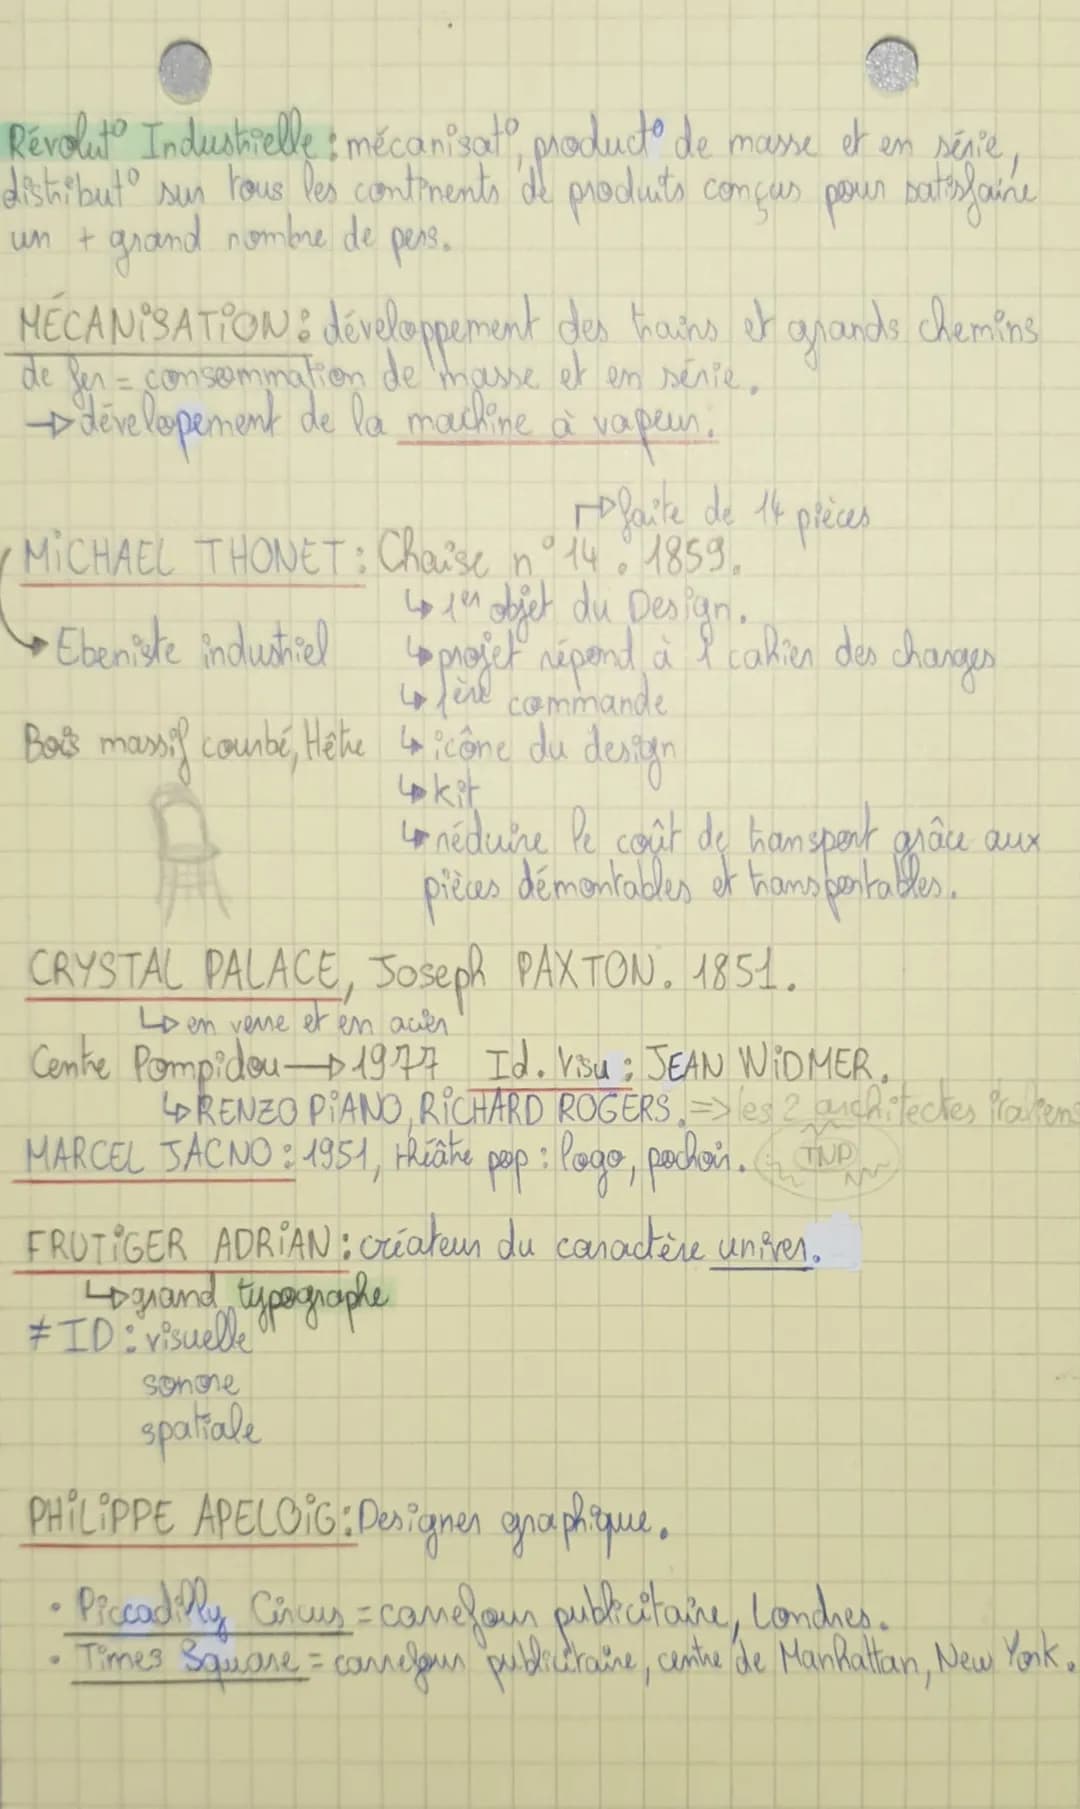 Révolut° Industrielle : mécanisat°, product° de masse et en série,
distribut° sur tous les continents de produits conçus pour satisfaire
un + grand nombre de pers.
MÉCANISATION : développement des trains et grands chemins
de fer = consommation de masse et en série.
→ dévelopement de la machine à vapeur.
→ faite de 14 pièces
MICHAEL THONET : Chaise n°14. 1859.
↳ 1er objet du Design.
→ Ebeniste industriel
↳ projet répond à 1 cahier des charges
↳ 1ère commande
Bois massif courbé, Hêtre
↳ icône du design
↳ kit
↳ réduire le coût de transport grâce aux
pièces démontables et transportables.
CRYSTAL PALACE, Joseph PAXTON. 1851.
↳ en verre et en acier
Centre Pompidou → 1977 Id. Visu : JEAN WIDMER.
↳ RENZO PIANO, RICHARD ROGERS. => les 2 architectes italiens
MARCEL JACNO : 1951, théâtre pop : logo, pochoir. TNP
FRUTIGER ADRIAN : créateur du caractère univer.
↳ grand typographe
≠ ID : visuelle
sonore
spatiale
PHILIPPE APELOIG : Designer graphique.
• Piccadilly Circus = carrefour publicitaire, Londres.
• Times Square = carrefour publicitaire, centre de Manhattan, New York.